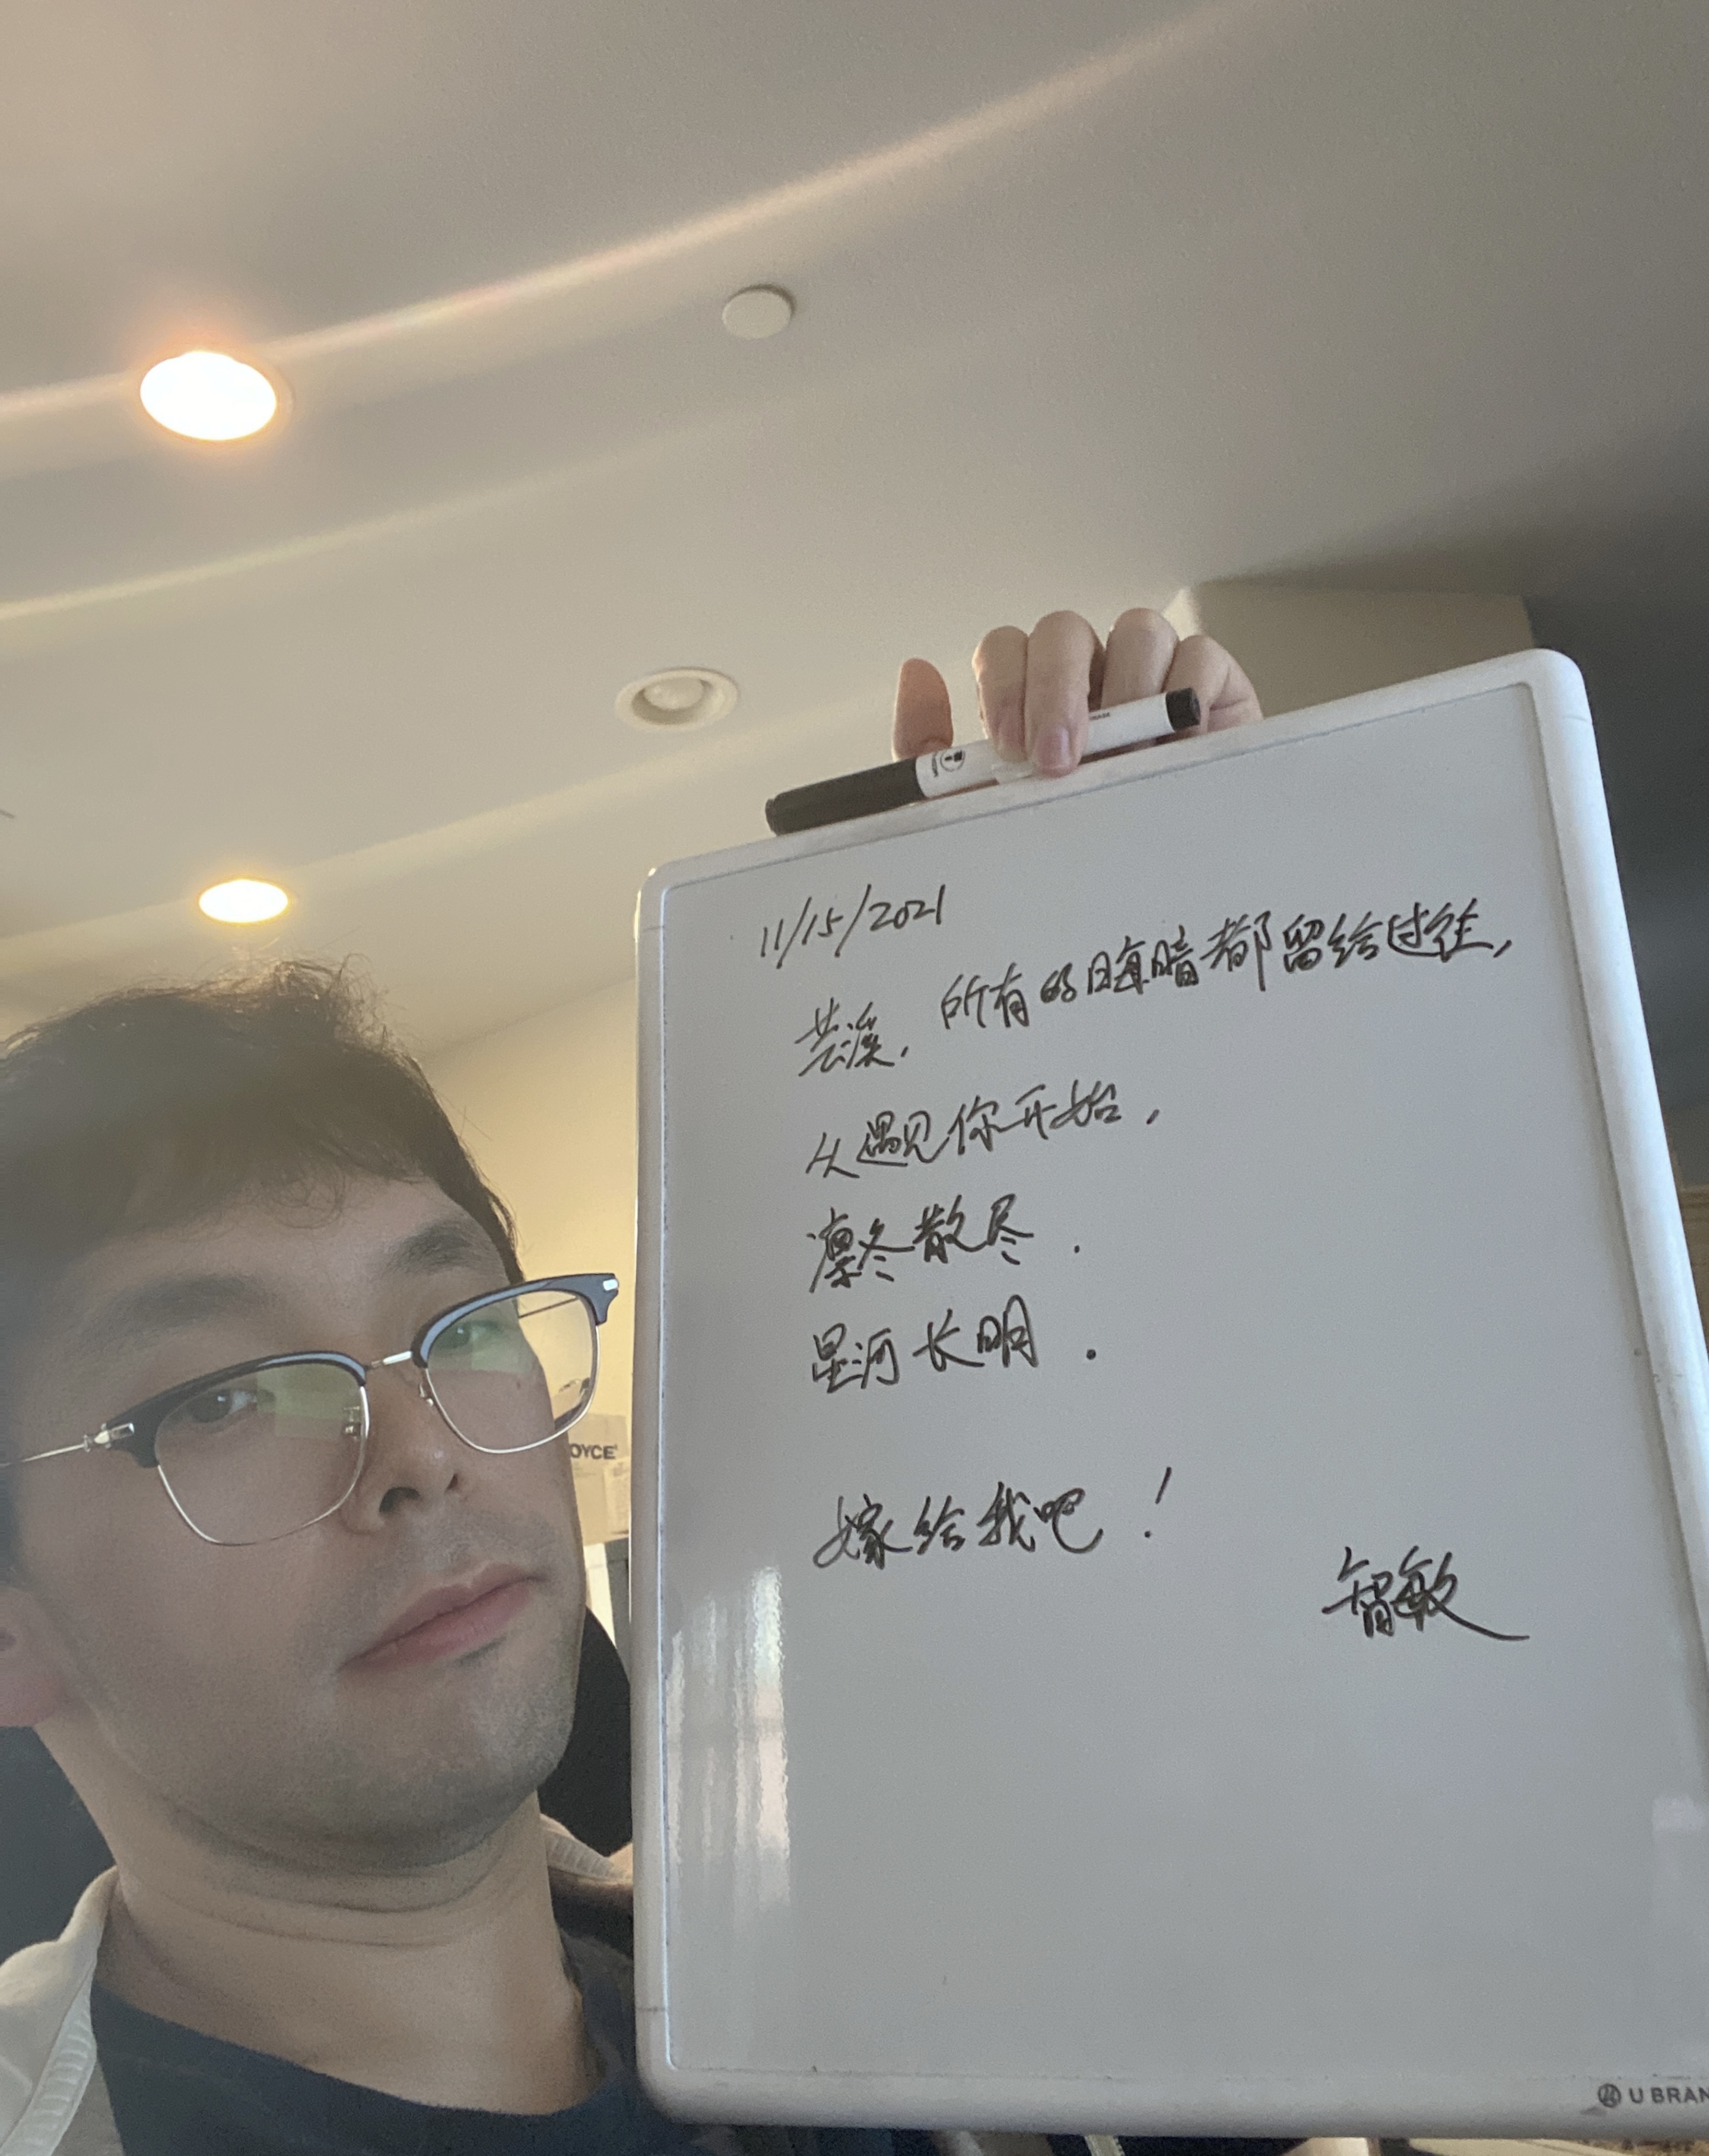 11/15/2021
芸溪，所有的晦暗都留给过往，
从遇见你开始，
凛冬散尽．
星河长明．
嫁给我吧！
智敏
OYCE
U BRAN